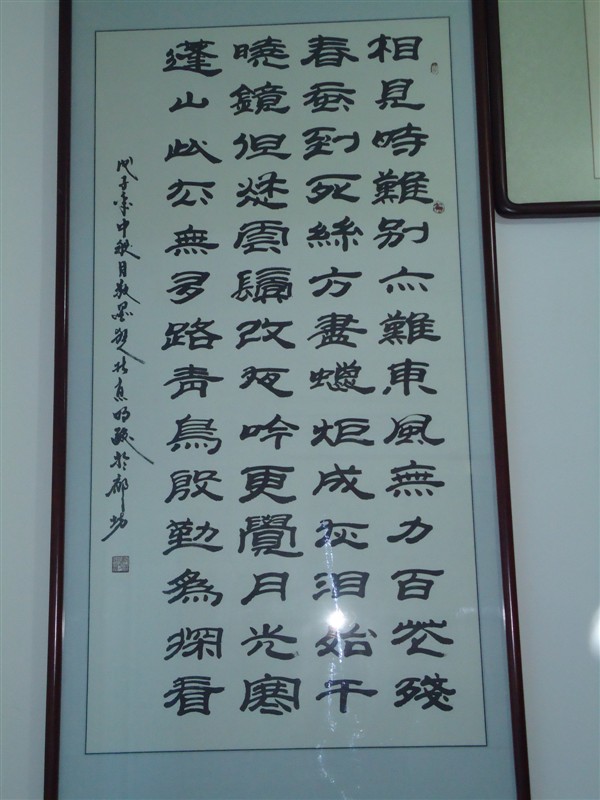 相見時難別亦難東風無力百花殘
春蚕到死絲方盡蠟炬成灰泪始干
曉鏡但愁雲鬢改夜吟更覺月光寒
蓬山此去無多路青鳥殷勤為探看
戊子年中秋月於廊坊